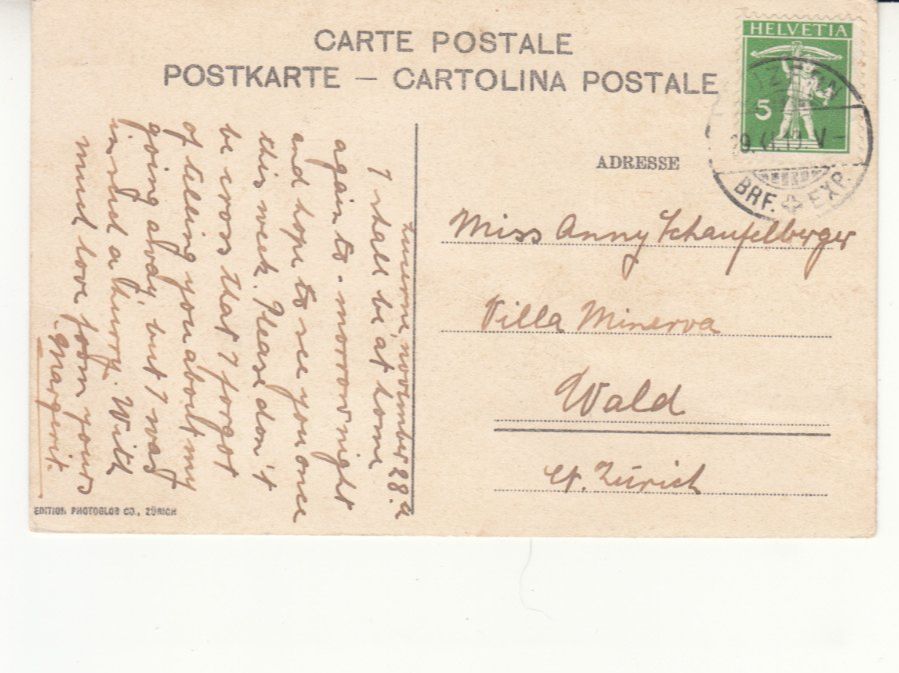 CARTE POSTALE
POSTKARTE — CARTOLINA POSTALE
HELVETIA
5
BRF. EXP.
ADRESSE
Miss Anny Schaufelberger
Villa Minerva
Wald
Ct. Zürich
november 28.
I shall be at home
again to-morrow night
and hope to see you once
this week. Please don't
be cross that I forgot
of telling you about my
going away, but I was
in such a hurry. With
much love from yours
Margerit.
EDITION PHOTOGLOB CO., ZÜRICH